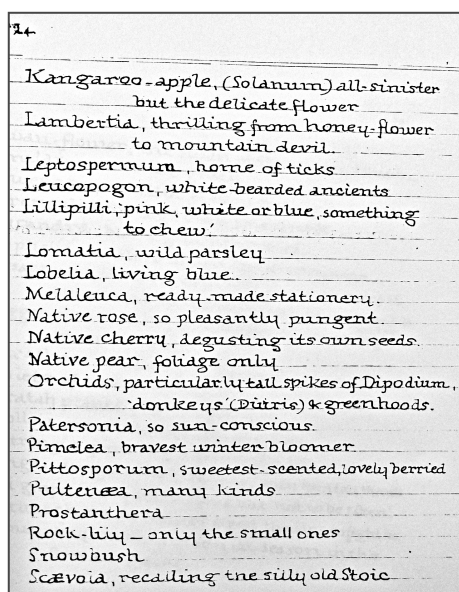 24
Kangaroo-apple, (Solanum) all-sinister
but the delicate flower
Lambertia, thrilling from honey-flower
to mountain devil.
Leptospermum, home of ticks
Leucopogon, white-bearded ancients
Lillipilli, pink, white or blue, something
to chew!
Lomatia, wild parsley
Lobelia, living blue.
Melaleuca, ready-made stationery.
Native rose, so pleasantly pungent
Native cherry, degusting its own seeds.
Native pear, foliage only
Orchids, particularly tall spikes of Dipodium,
'donkeys' (Diuris) & greenhoods.
Patersonia, so sun-conscious.
Pimelea, bravest winter bloomer
Pittosporum, sweetest-scented, lovely berried
Pultenæa, many kinds
Prostanthera
Rock-lily – only the small ones
Snowbush
Scævola, recalling the silly old Stoic